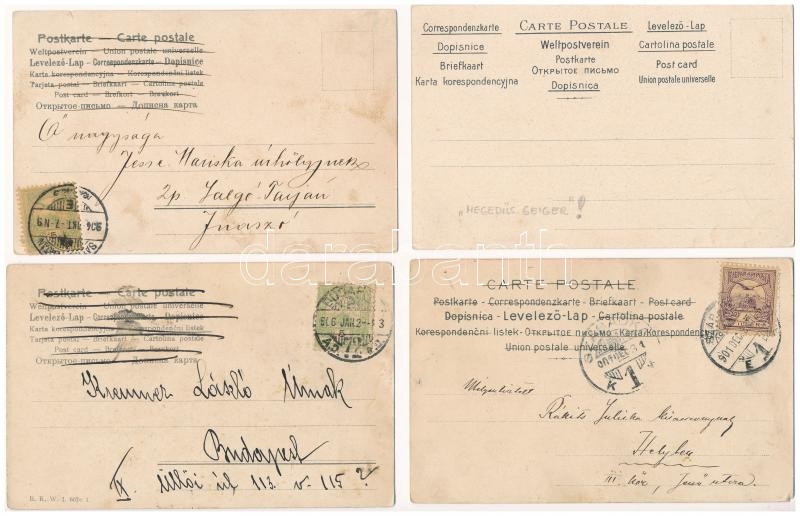 Postkarte — Carte postale
Weltpostverein — Union postale universelle
Levelező-Lap — Correspondenzkarte — Dopisnice
Karta korespondencyjna — Korespondenční listek
Tarjeta postal — Briefkaart — Cartolina postale
Post card — Brefkort — Brevkort
Открытое письмо — Дописна карта
Ő nagysága
Jesse Mariska úrhölgynek
2p. Salgó-Tarján
Inaszó
Correspondenzkarte
Dopisnice
Briefkaart
Karta korespondencyjna
CARTE POSTALE
Weltpostverein
Postkarte
Открытое письмо
Dopisnica
Levelező-Lap
Cartolina postale
Post card
Union postale universelle
"HEGEDŰS GEIGER"!
Postkarte — Carte postale
Weltpostverein — Union postale universelle
Levelező-Lap — Correspondenzkarte — Dopisnice
Karta korespondencyjna — Korespondenční listek
Tarjeta postal — Briefkaart — Cartolina postale
Post card — Brefkort — Brevkort
Открытое письмо — Дописна карта
Kremmer László Úrnak
Budapest
IX. Üllői út 113. v. 115?
B. K. W. I.
CARTE POSTALE
Postkarte - Correspondenzkarte - Briefkaart - Post card
Dopisnica - Levelező-Lap - Cartolina postale
Korespondenční listek - Открытое письмо - Karta Korespondencyjna
Union postale universelle
Rákits Juliska
Helyben
III. Jenő utca.
darabanth